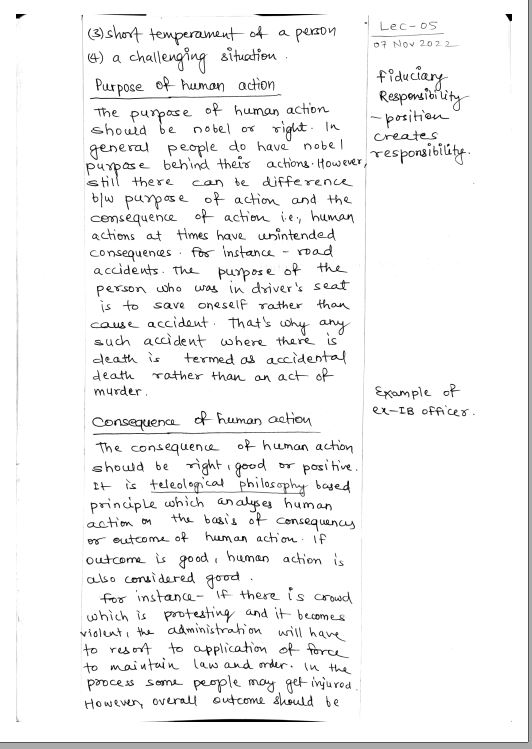 (3) short temperament of a person
(4) a challenging situation.
Purpose of human action
The purpose of human action
should be nobel or right. In
general people do have nobel
purpose behind their actions. However,
still there can be difference
b/w purpose of action and the
consequence of action i.e., human
actions at times have unintended
consequences. for instance - road
accidents. The purpose of the
person who was in driver's seat
is to save oneself rather than
cause accident. That's why any
such accident where there is
death is termed as accidental
death rather than an act of
murder.
Consequence of human action
The consequence of human action
should be right, good or positive.
It is teleological philosophy based
principle which analyses human
action on the basis of consequences
or outcome of human action. If
outcome is good, human action is
also considered good.
for instance - If there is crowd
which is protesting and it becomes
violent, the administration will have
to resort to application of force
to maintain law and order. In the
process some people may get injured.
However, overall outcome should be
Lec-05
07 Nov 2022
fiduciary
Responsibility
- position
creates
responsibility.
Example of
ex-IB officer.